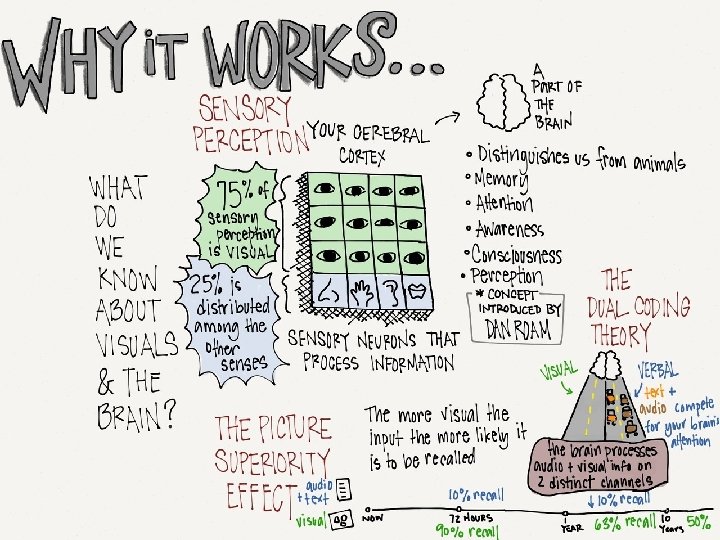 WHY iT WORKS...
SENSORY
PERCEPTION
YOUR CEREBRAL
CORTEX
A
PART OF
THE
BRAIN
• Distinguishes us from animals
• Memory
• Attention
• Awareness
• Consciousness
• Perception
* CONCEPT
INTRODUCED BY
DAN ROAM
WHAT
DO
WE
KNOW
ABOUT
VISUALS
& THE
BRAIN?
75% of
sensory
perception
is VISUAL
25% is
distributed
among the
other
senses
SENSORY NEURONS THAT
PROCESS INFORMATION
THE
DUAL CODING
THEORY
VISUAL
VERBAL
text +
audio compete
for your brain's
attention
the brain processes
audio + visual info on
2 distinct channels
THE PICTURE
SUPERIORITY
EFFECT
The more visual the
input the more likely it
is to be recalled
audio
+ text
visual
NOW
10% recall
72 HOURS
90% recall
↓ 10% recall
1
YEAR
63% recall
10
Years
50%